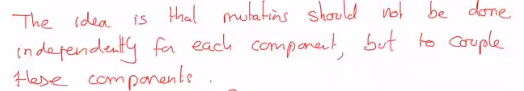 The idea is that mutations should not be done
independently for each component, but to couple
these components.